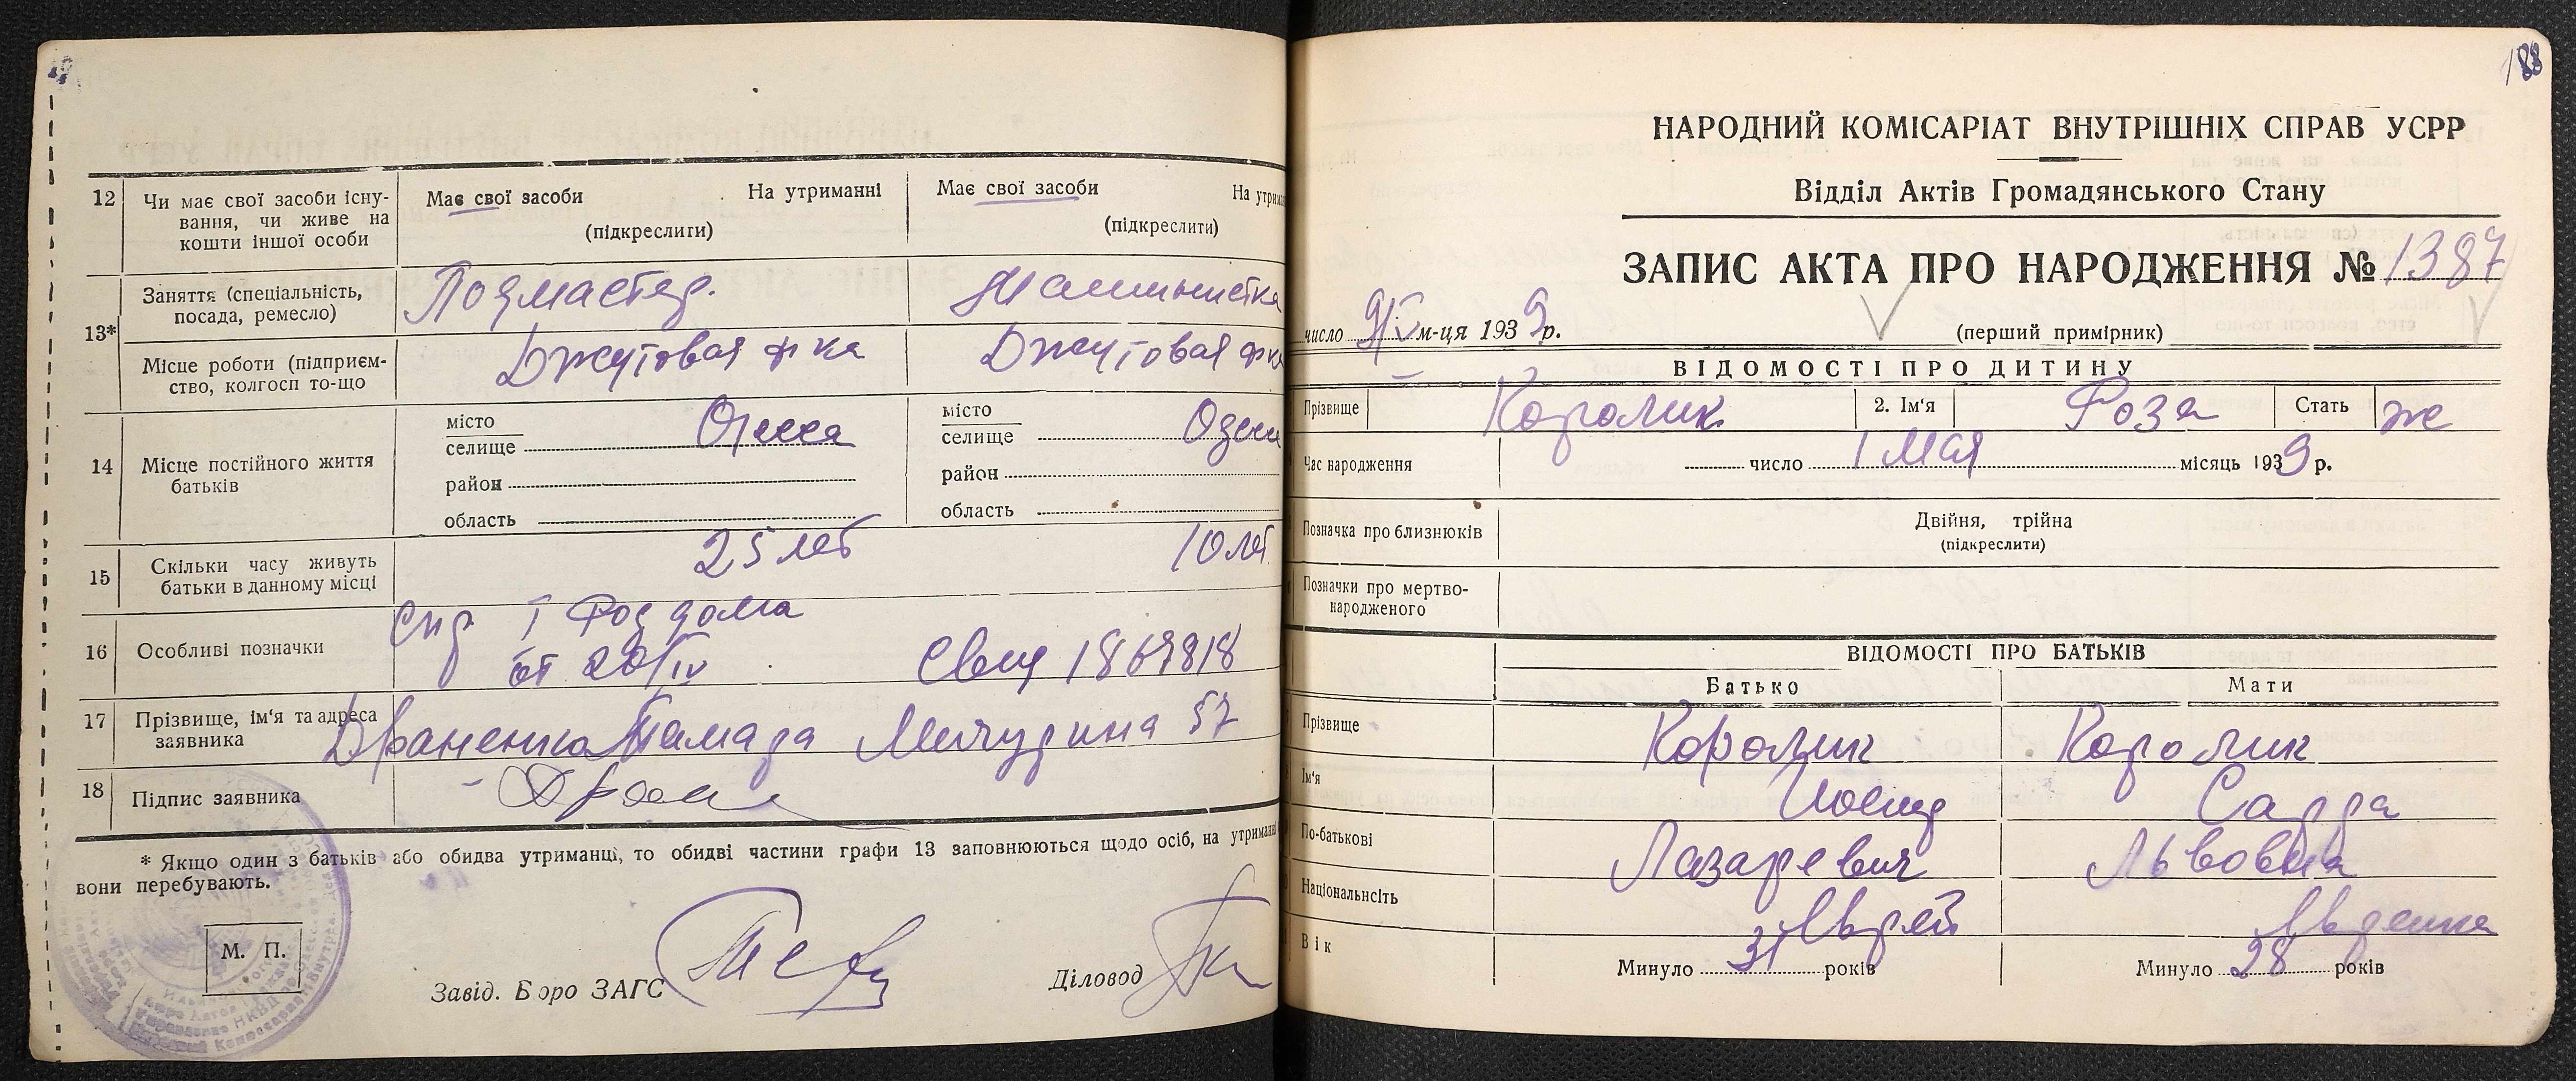 12 Чи має свої засоби існу-
вання, чи живе на
кошти іншої особи
Має свої засоби На утриманні
(підкреслиги)
Має свої засоби На утрим
(підкреслити)
13*
Заняття (спеціальність,
посада, ремесло)
Подмастер.
Машинистка
Місце роботи (підприєм-
ство, колгосп то-що
Джутовая ф ка
Джутовая ф ка
14 Місце постійного життя
батьків
місто
селище Одесса
район
область
місто
селище Одесса
район
область
15 Скільки часу живуть
батьки в данному місці
25 лет
10 лет
16 Особливі позначки
Спр I Роддома
от 20/IV Свид 1867818
17 Прізвище, ім‘я та адреса
заявника
Драненко Тамара Мичурина 57
18 Підпис заявника
* Якщо один з батьків або обидва утриманці, то обидві частини графи 13 заповнюються щодо осіб, на утриманні
вони перебувають.
М. П.
Завід. Бюро ЗАГС
Діловод
188
НАРОДНИЙ КОМІСАРІАТ ВНУТРІШНІХ СПРАВ УСРР
Відділ Актів Громадянського Стану
ЗАПИС АКТА ПРО НАРОДЖЕННЯ № 1387
число 9/V м-ця 1939 р.
(перший примірник)
ВІДОМОСТІ ПРО ДИТИНУ
Прізвище Королик 2. Ім‘я Роза Стать ж
Час народження число 1 мая місяць 1939 р.
Позначка про близнюків
Двійня, трійна
(підкреслити)
Позначки про мертво-
народженого
ВІДОМОСТІ ПРО БАТЬКІВ
Батько Мати
Прізвище Королик Королик
Ім‘я Иосиф Сарра
По-батькові Лазаревич Львовна
Національність Еврей Еврейка
Вік Минуло 31 років Минуло 28 років